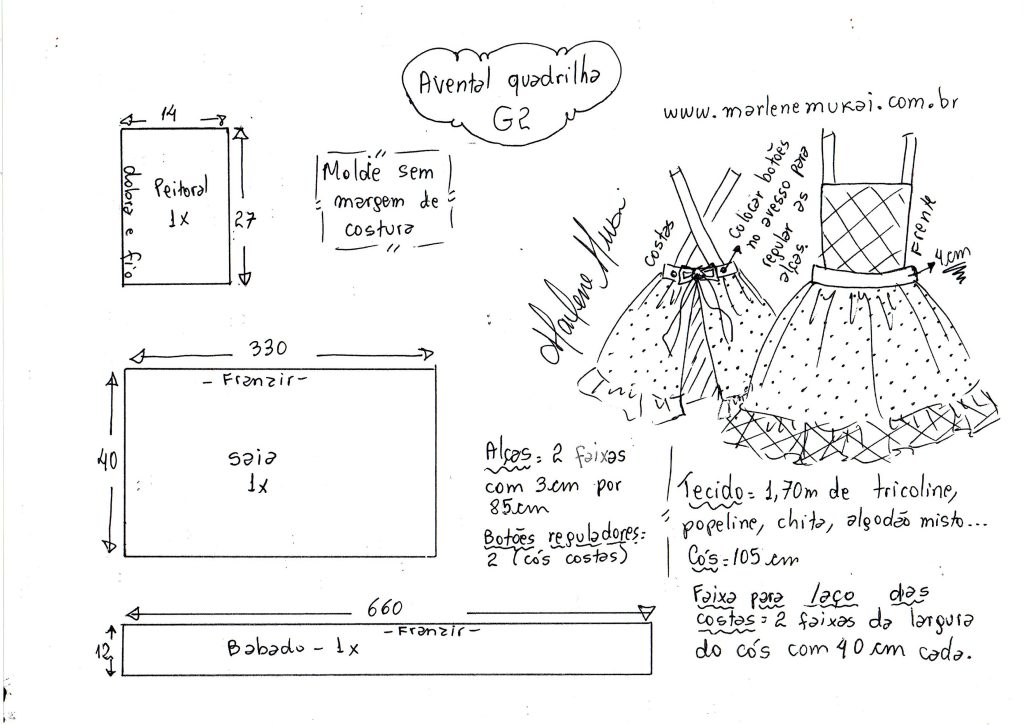 Avental quadrilha
G2
www.marlenemukai.com.br
14
dobra e fio
Peitoral
1x
27
Molde sem
margem de
costura
Marlene Mukai
costas
Colocar botões
no avesso para
regular as
alças.
Frente
4cm
330
- Franzir -
40
saia
1x
Alças = 2 faixas
com 3cm por
85cm
Botões reguladores =
2 (cós costas)
Tecido = 1,70m de tricoline,
popeline, chita, algodão misto...
Cós = 105 cm
Faixa para laço das
costas = 2 faixas da largura
do cós com 40 cm cada.
660
- Franzir -
12
Babado - 1x